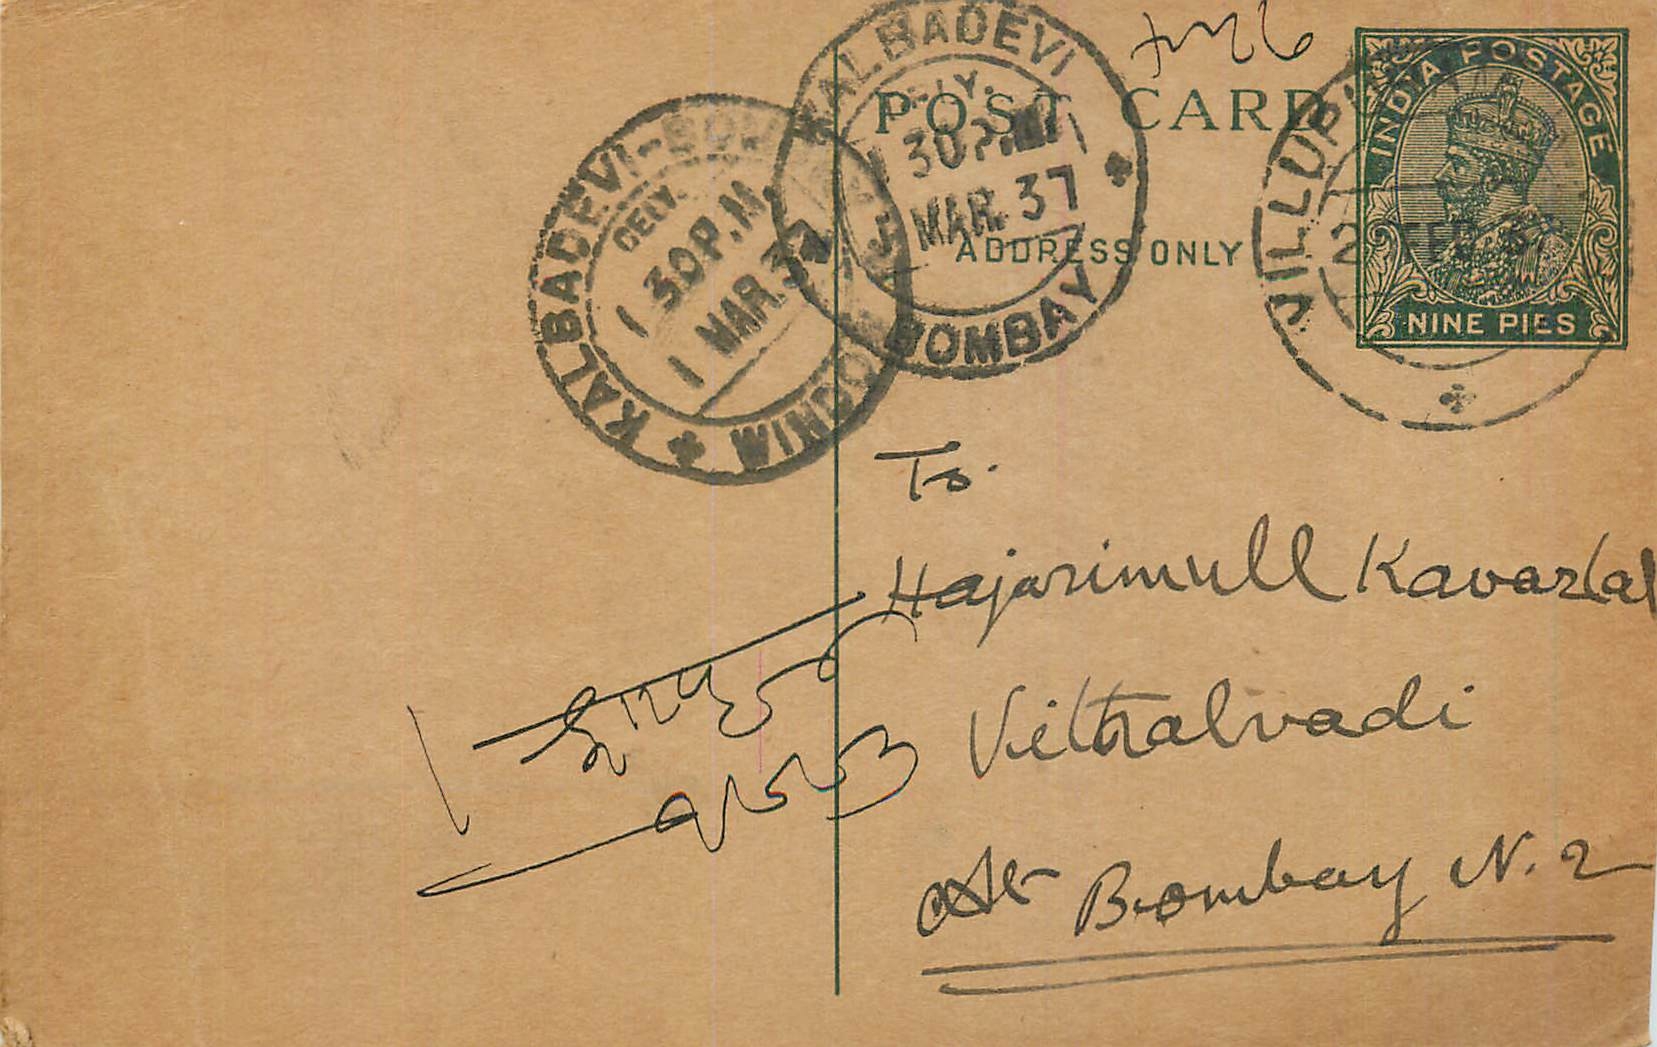 POST CARD
ADDRESS ONLY
INDIA POSTAGE
NINE PIES
KALBADEVI
DELY.
1 30 P.M.
1 MAR. 37
BOMBAY
KALBADEVI-BOMBAY
DELY.
1 30 P.M.
1 MAR. 37
WINDOW
VILLUPU
FEB
To.
Hajarimull Kavarlal
Vithalvadi
At Bombay N. 2